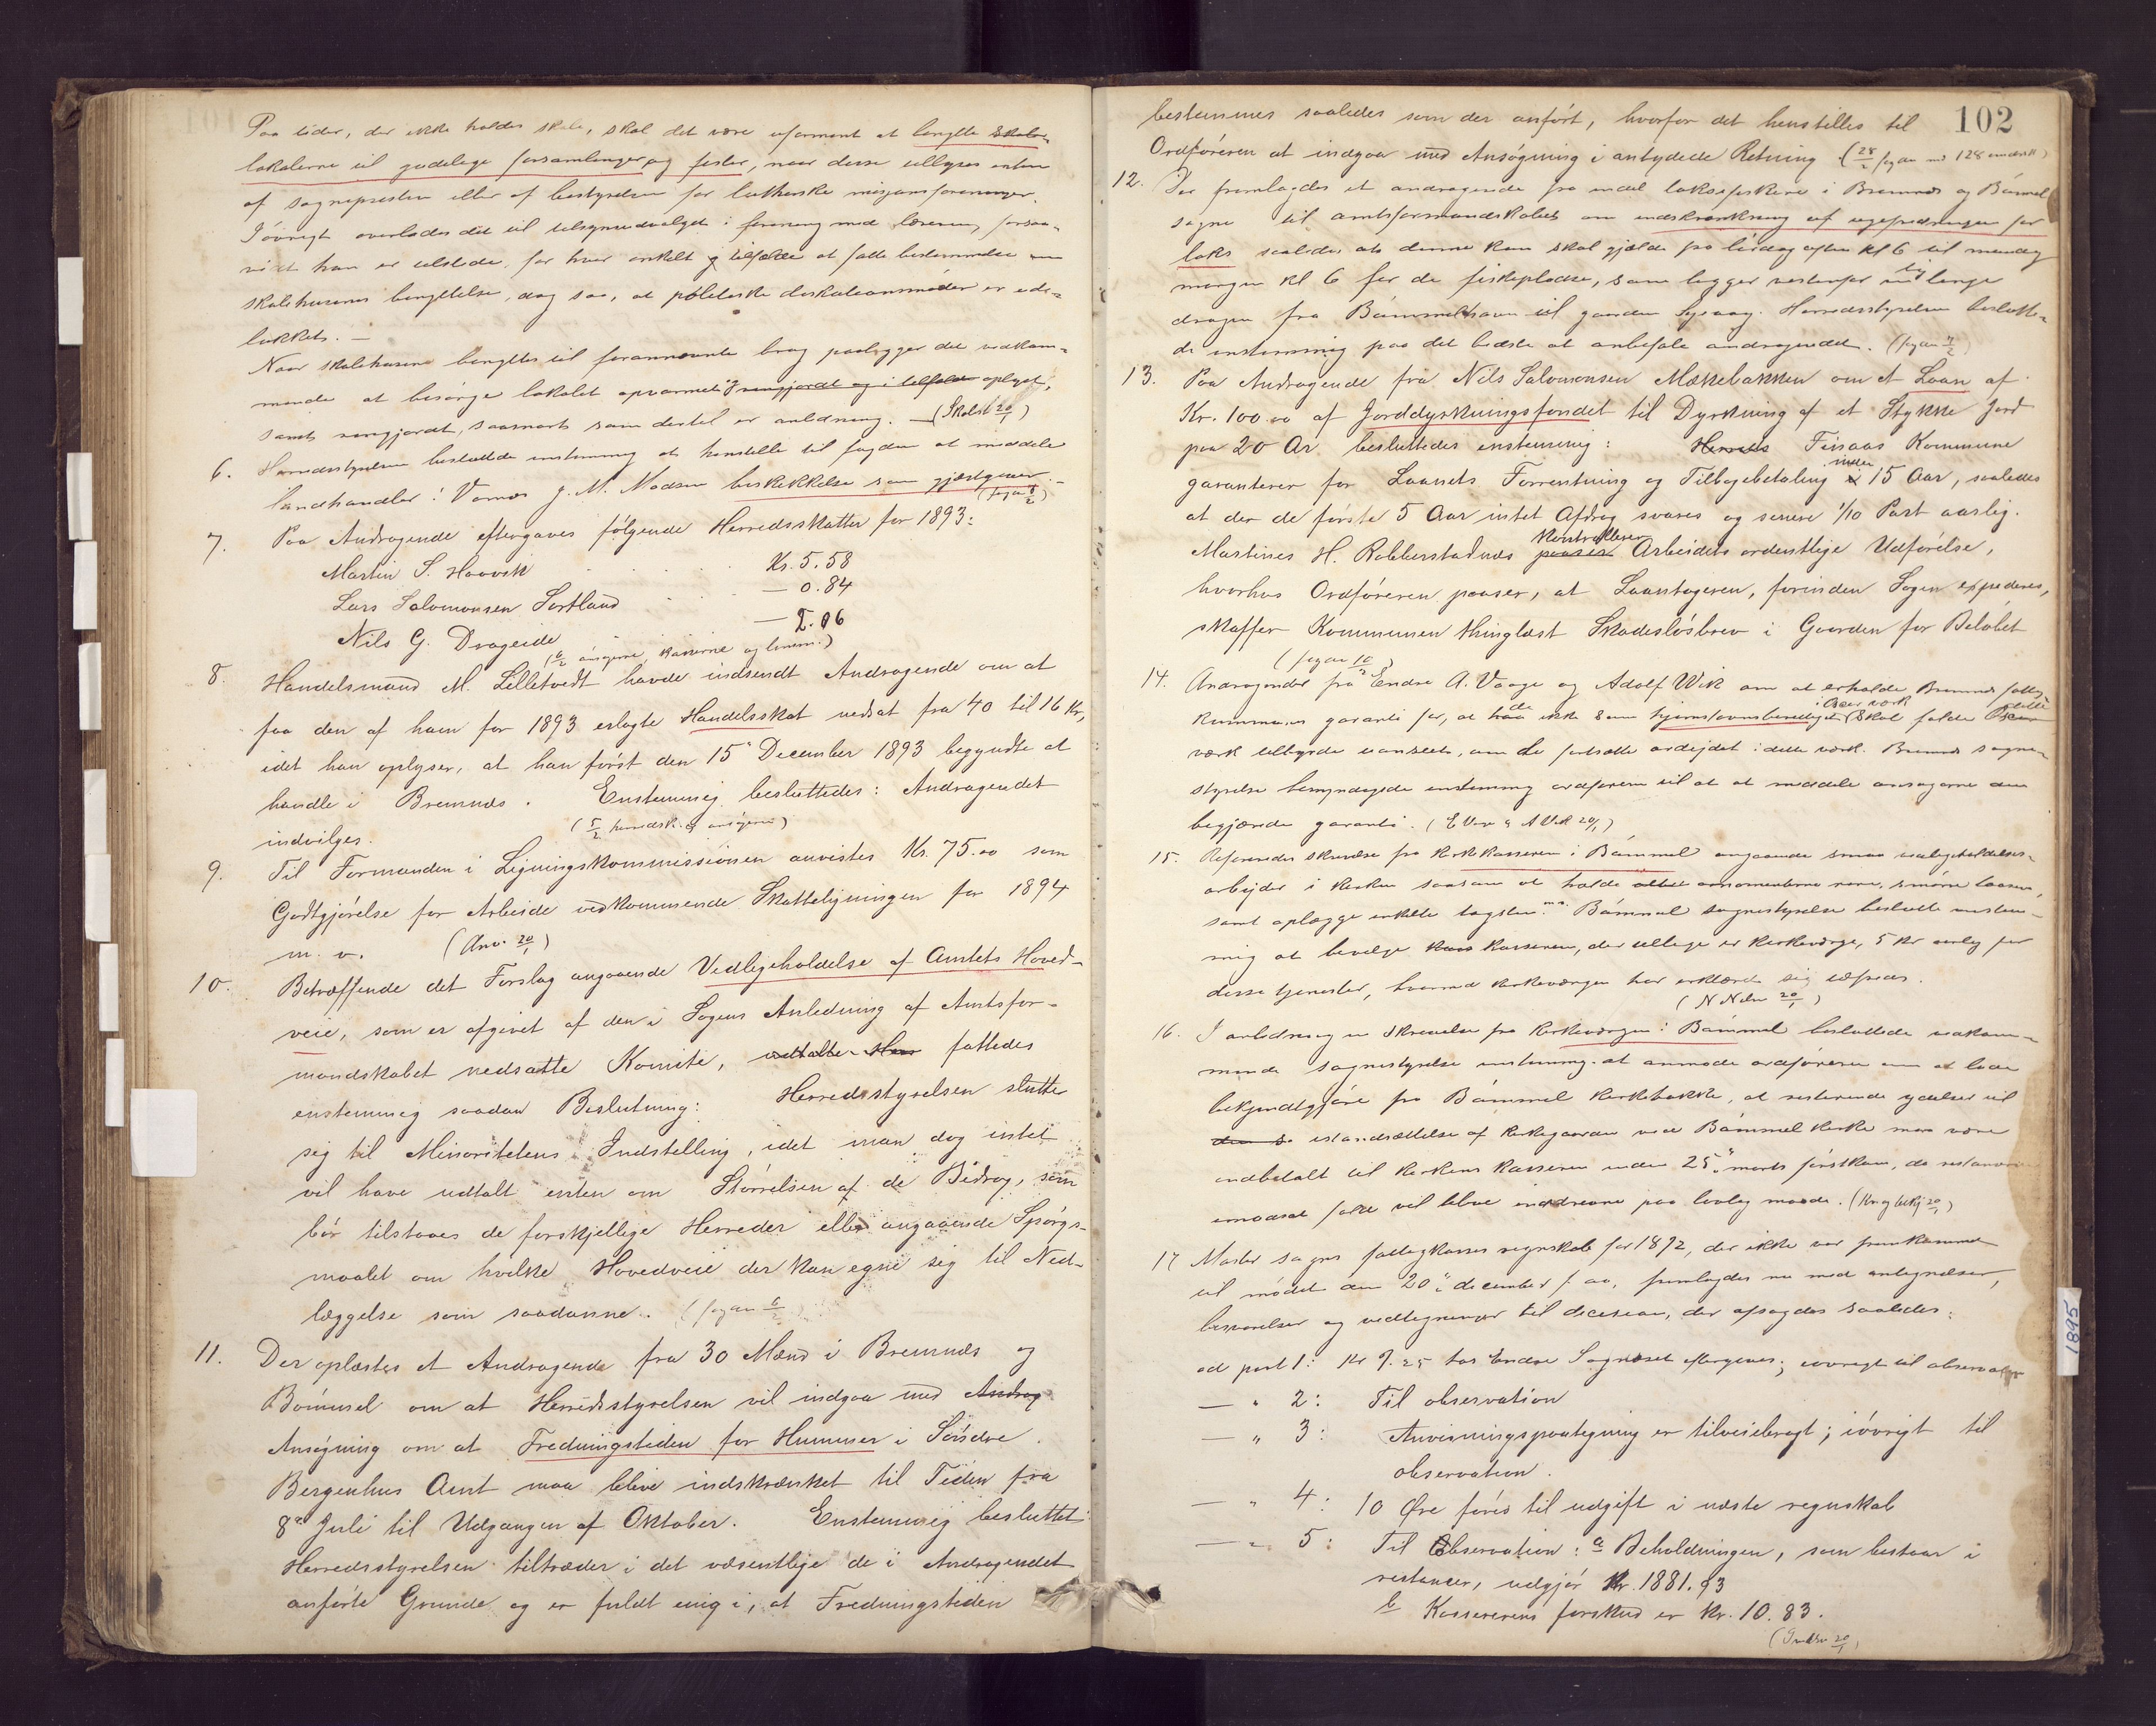 Paa tider, der ikke holdes skole, skal det være uforment at benytte skole-
lokalerne til gudelige forsamlinger og fester, naar disse tillyses enten
af sognepresten eller af bestyrelsen for lutherske misjonsforeninger.
Iøvrigt overlades det til tilsynsudvalget i forening med læreren, forsaa-
vidt han er tilstede, for hver enkelt tilfælde at fatte bestemmelse om
skolehusenes benyttelse, dog saa, at politiske diskutionsmøder er ude-
lukket. —
Naar skolehusene benyttes til forannevnte brug paaligger det vedkom-
mende at besørge lokalet opvarmet og rengjordt og i tilfælde oplyst,
samt rengjordt, saasnart som dertil er anledning. — (Skolest 20/1)
6. Herredsstyrelsen besluttede enstemmig at henstille til fogden at meddele
landhandler i Vornæs J. M. Madsen beskikkelse som gjæstgiver.
(fogden 8/2)
7. Paa Andragende eftergaves følgende Herredsskatter for 1893:
Martin S. Hoovik Kr. 5.58
Lars Salomonsen Sortland — 0.84
Nils G. Drageide — 2.06
(6/2 ansøgerne, kasserne og lensm.)
8. Handelsmand M. Lilletvedt havde indsendt Andragende om at
faa den af ham for 1893 erlagte Handelsskat nedsat fra 40 til 16 Kr,
idet han oplyser, at han først den 15de December 1893 begyndte at
handle i Bremnæs. Enstemmig besluttedes: Andragendet
indvilges. (5/2 herredsk. og ansøgeren)
9. Til Formanden i Ligningskommissionen anvistes Kr. 75.00 som
Godtgjørelse for Arbeide vedkommende Skatteligningen for 1894
m. v. (Anv. 20/1)
10. Betræffende det Forslag angaaende Vedligeholdelse af Amtets Hoved-
veie, som er afgivet af den i Sagens Anledning af Amtsfor-
mandskabet nedsatte Komite, udtalte Her fattedes
enstemmig saadan Beslutning: Herredsstyrelsen slutter
sig til Minoritetens Indstilling, idet man dog intet
vil have udtalt enten om Størrelsen af de Bidrag, som
bør tilstaaes de forskjellige Herreder eller angaaende Spørgs-
maalet om hvilke Hovedveie der kan egne sig til Ned-
læggelse som saadanne. (fogden 6/2)
11. Der oplæstes et Andragende fra 30 Mænd i Bremnæs og
Bømmel om at Herredsstyrelsen vil indgaa med Andrag
Ansøgning om at Fredningstiden for Hummer i Søndre
Bergenhus Amt maa blive indskrænket til Tiden fra
8de Juli til Udgangen af Oktober. Enstemmig besluttet:
Herredsstyrelsen tiltræder i det væsentlige de i Andragendet
anførte Grunde og er fuldt enig i, at Fredningstiden
102
bestemmes saaledes som der anført, hvorfor det henstilles til
Ordføreren at indgaa med Ansøgning i antydede Retning (28/2 fogden med 128 underskr)
12. Der fremlagdes et andragende fra endel laksefiskere i Bremnes og Bømmel
sogne til amtsformandskabet om indskrænkning af ugefredningen for
laks saaledes at denne kun skal gjælde fra lørdag aften kl 6 til mandag
morgen kl 6 for de fiskepladse, som ligger vestenfor en linje
dragen fra Bømmelhavn til gaarden Syvaag. Herredsstyrelsen beslutte-
de enstemmig paa det bedste at anbefale andragendet. (fogden 9/2)
13. Paa Andragende fra Nils Salomonsen Mækkebakken om et Laan af
Kr. 100.00 af Jorddyrkningsfondet til Dyrkning af et Stykke Jord
paa 20 Ar besluttedes enstemmig: Herreds Finaas Kommune
garanterer for Laanets Forrentning og Tilbagebetaling inden 15 Aar, saaledes
at der de første 5 Aar intet Afdrag svares og senere 1/10 Part aarlig.
Martines H. Robberstadnæs paaser Kontrollerer Arbeidets ordentlige Udførelse,
hvorhos Ordføreren paaser, at Laantageren, forinden Sagen expederes,
skaffer Kommunen thinglæst Skadesløsbrev i Gaarden for Beløbet
(fogden 10/2)
14. Andragender fra Endre A. Vaage og Adolf Wik om at erholde Bremnes fattig-
kommunes garanti for, at de ikke som hjemstavnsberettiget skal falde Oscar i Oscar værk
værk tilbyrde uanseet, om de fortsætte ardejdet i dette værk. Bremnes sogne-
styrelse bemyndigede enstemmig ordføreren til at at meddele ansøgerne den
begjærede garanti. (E Vaage & A Vik 20/1)
15. Refereredes skrivelse fra kirkekasseren i Bømmel angaaende smaa vedligeholdelses-
arbejder i kirken saasom at holde altret ornamenterne rene, smøre laasen,
samt oplægge enkelte tagsten m.v. Bømmel sognestyrelse besluttede enstem-
mig at bevilge kas kasseren, der tillige er kirkeværge, 5 kr aarlig for
disse tjenester, hvormed kirkeværgen har erklæret sig tilfreds.
(N Nilsen 20/1)
16. I anledning en skrivelse fra kirkeværgen i Bømmel besluttede vedkom-
mende sognestyrelse enstemmig at anmode ordføreren om at lade
bekjendtgjøre fra Bømmel kirkebakke, at resterende ydelser til
den s istandsættelse af kirkegaarden ved Bømmel kirke maa være
indbetalt til kirkens kasserer inden 25de marts førstkom, da restancerne
i modsat fald vil blive inddrevne paa lovlig maade. (Kv og bekj 20/1)
17. Moster sogns fattigkasses regnskab for 1892, der ikke var fremkommet
til mødet den 20de december f. aa, fremlagdes nu med antegnelser,
besvarelser og vedtegninger til decision, der afsagdes saaledes:
ad post 1: Kr 7.25 hos Endre Sagnæset eftergives; iøvrigt til observation
— " 2: Til observation
— " 3: Anvisningspaategning er tilveiebragt; iøvrigt til
observation.
— " 4: 10 Øre føres til udgift i næste regnskab
— " 5: Til Observation: a Beholdningen, som bestaar i
restancer, udgjør Kr. 1881.93
b Kassererens forskud er Kr. 10.83.
1895